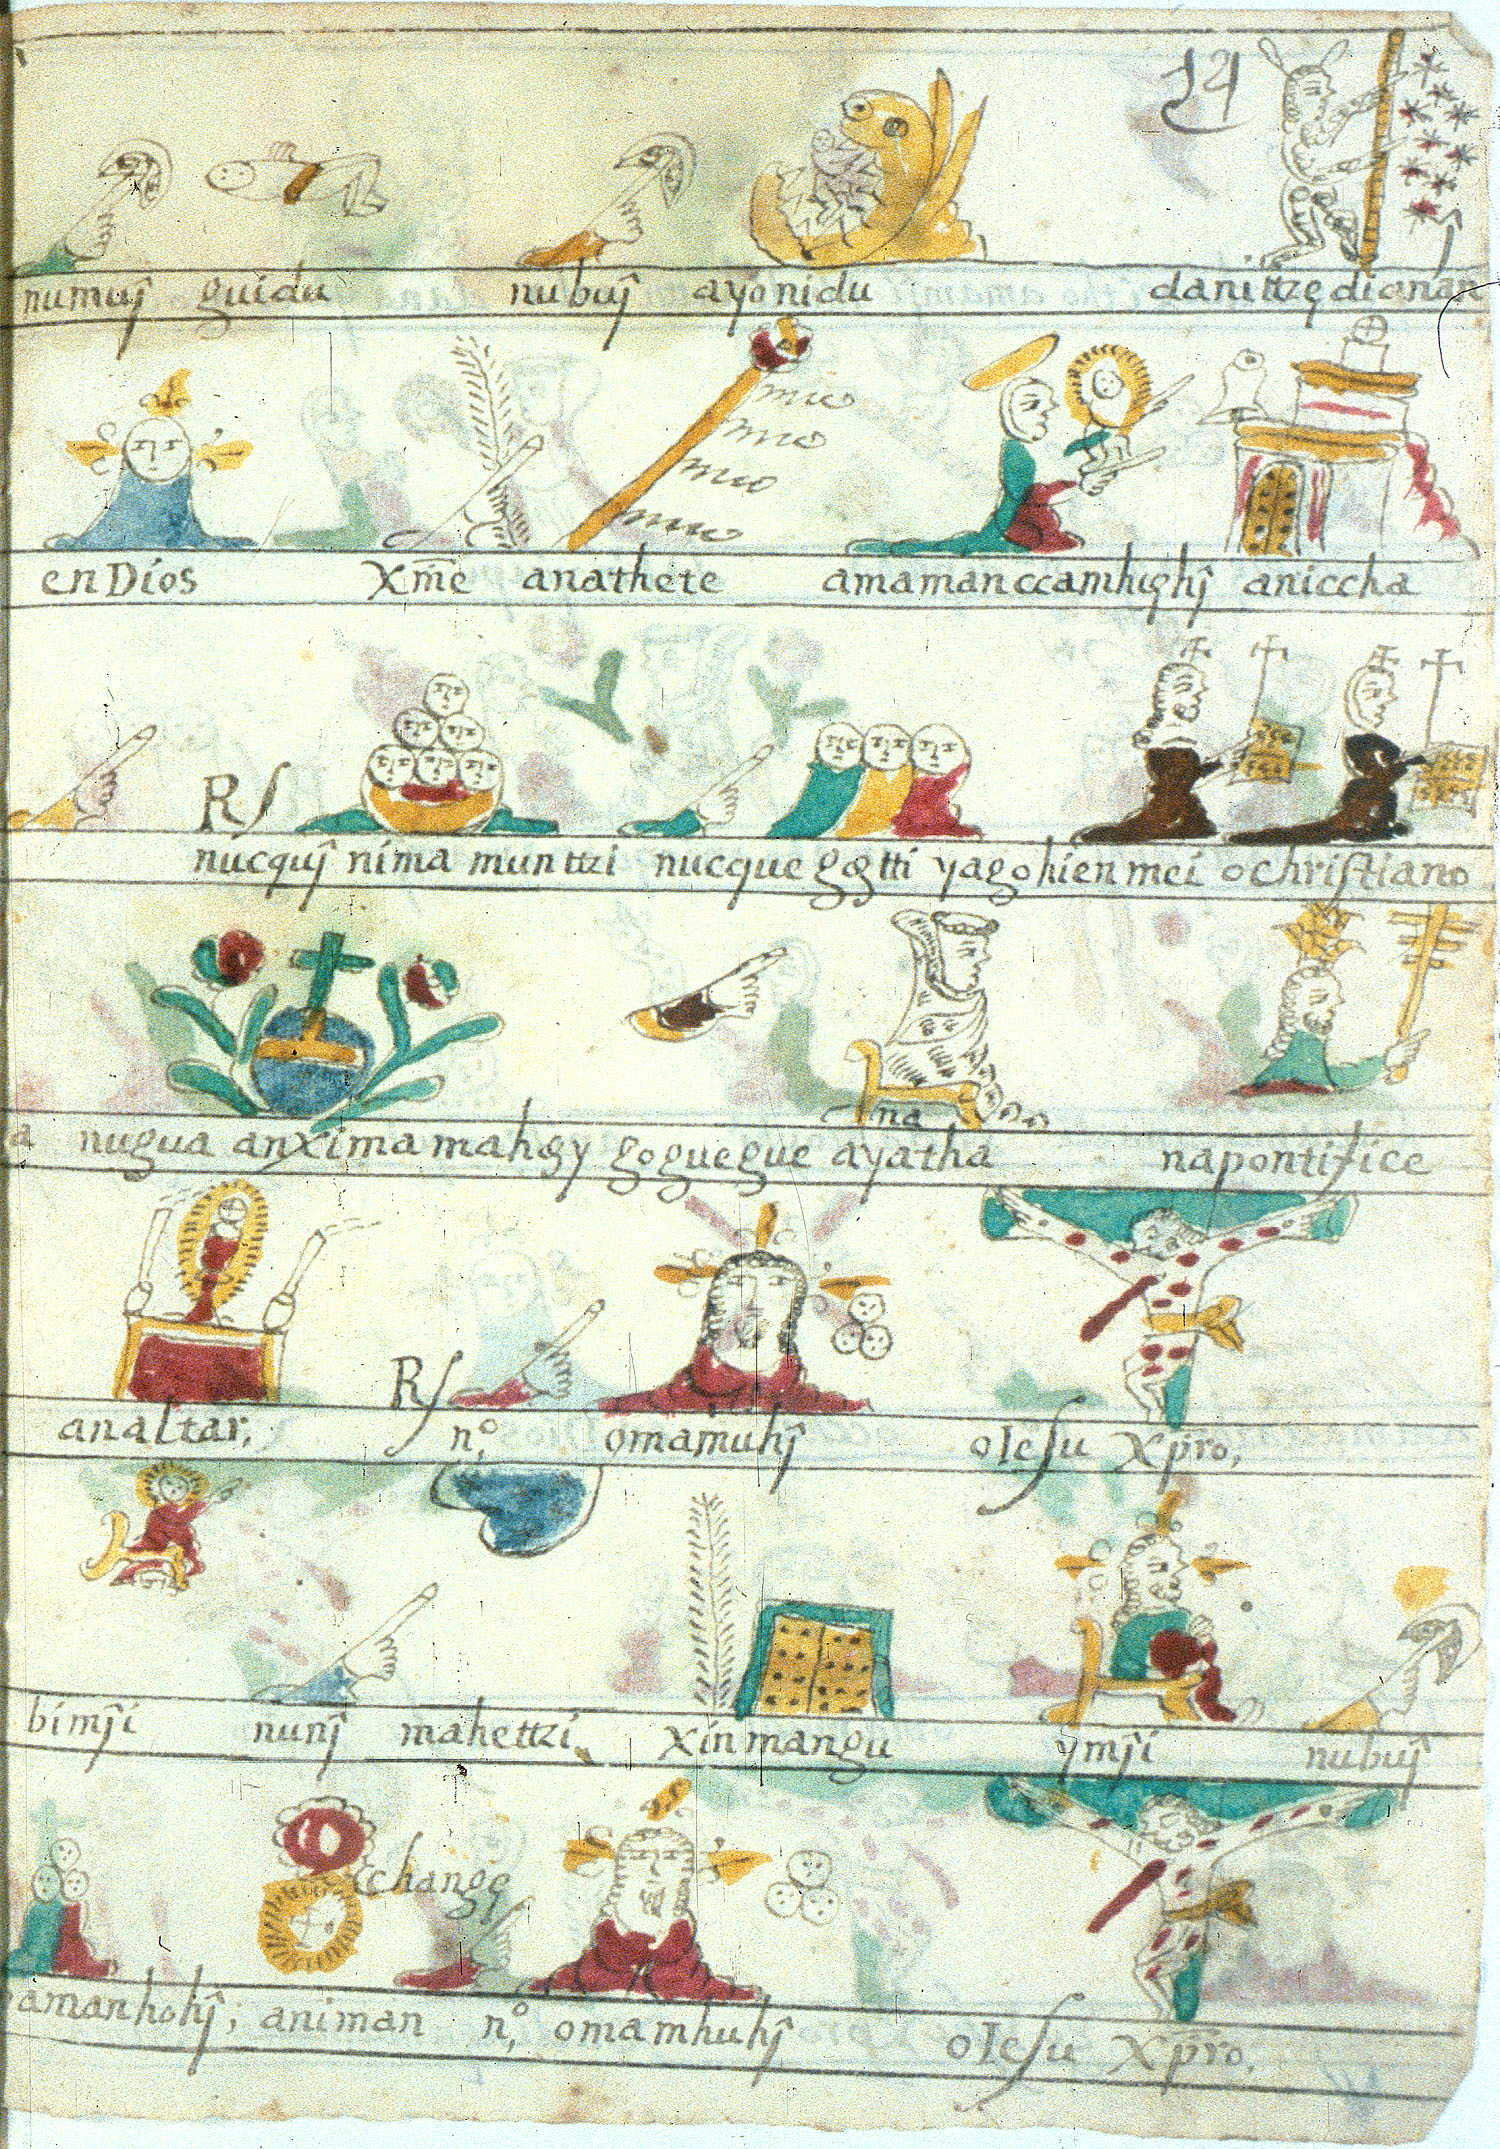 14
numuĵ guidu nubuĵ ayonidu danittzę dianan
mio
mio
mio
mio
en Dios Xm̃e anathete amamanccamhęhĵ aniccha
R∫
nucquĵ nima munttzi nucque gotti yagohienmei ochriſtiano
na
a nugua anxima mahoy goguegue ayatha napontifice
R∫
analtar; nº, omamuhĵ oIeſu Xp̃ro,
bimĵi nunĵ mahettzi, xinmangu ymĵi nubuĵ
cchangę
amanhohĵ; animan nº, omamhuhĵ oIeſu Xp̃ro,